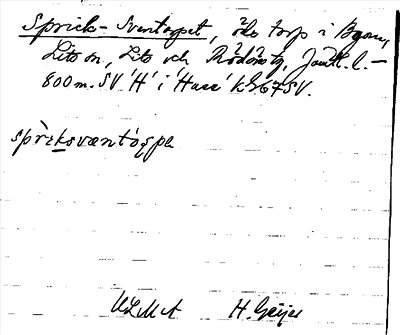 Sprick-Sventorpet, öde torp i Byom,
Lits sn, Lits och Rödöns tg, Jämtl. l. –
800 m. SV 'H' i 'Huse' kbl 67 SV.
sprìksvæntórpe
ULMA H. Geijer